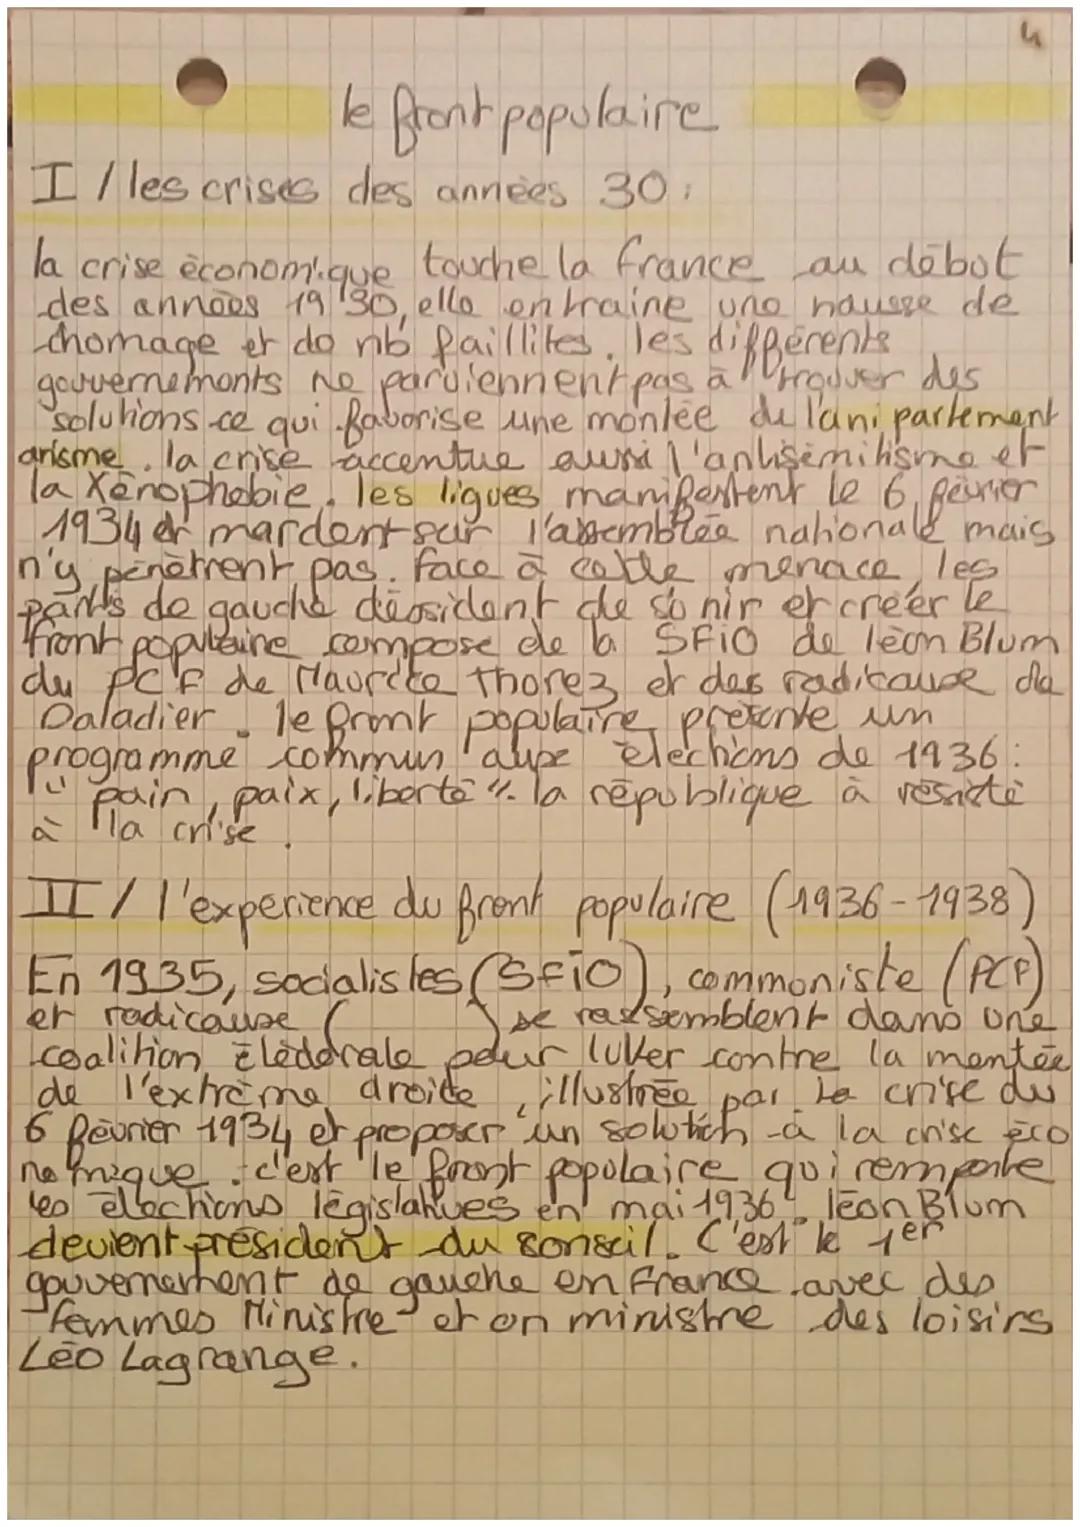 4
le front populaire
I / les crises des années 30 :
la crise économique touche la france au début
des années 1930, elle entraine une hausse de
chomage et de nb faillites. les différents
gouvernements ne parviennent pas à trouver des
solutions ce qui favorise une montée de l'ani parlement
arisme. la crise accentue aussi l'antisémitisme et
la xénophobie. les ligues manifestent le 6 février
1934 et mardent sur l'assemblée nationale mais
n'y pénètrent pas. face à cette menace, les
partis de gauche déssident de s'unir et créer le
front populaire compose de la SFiO de léon Blum
du PCF de Maurice Thorez et des radicause de
Daladier. le front populaire présente un
programme commun aupe élections de 1936 :
" pain, paix, liberté ". la république à résisté
à la crise.
II / l'experience du front populaire (1936-1938)
En 1935, socialistes (SFiO), commoniste (PCF)
et radicause ( ) se rassemblent dans une
coalition élédorale pour lutter contre la montée
de l'extrème droite, illustrée par la crise du
6 février 1934 et proposer un solution à la crise éco
nomique : c'est le front populaire qui remporte
les élections législatives en mai 1936. léon Blum
devient président du conseil. C'est le 1er
gouvernement de gauche en france avec des
femmes Ministre et un ministre des loisirs
Léo Lagrange.